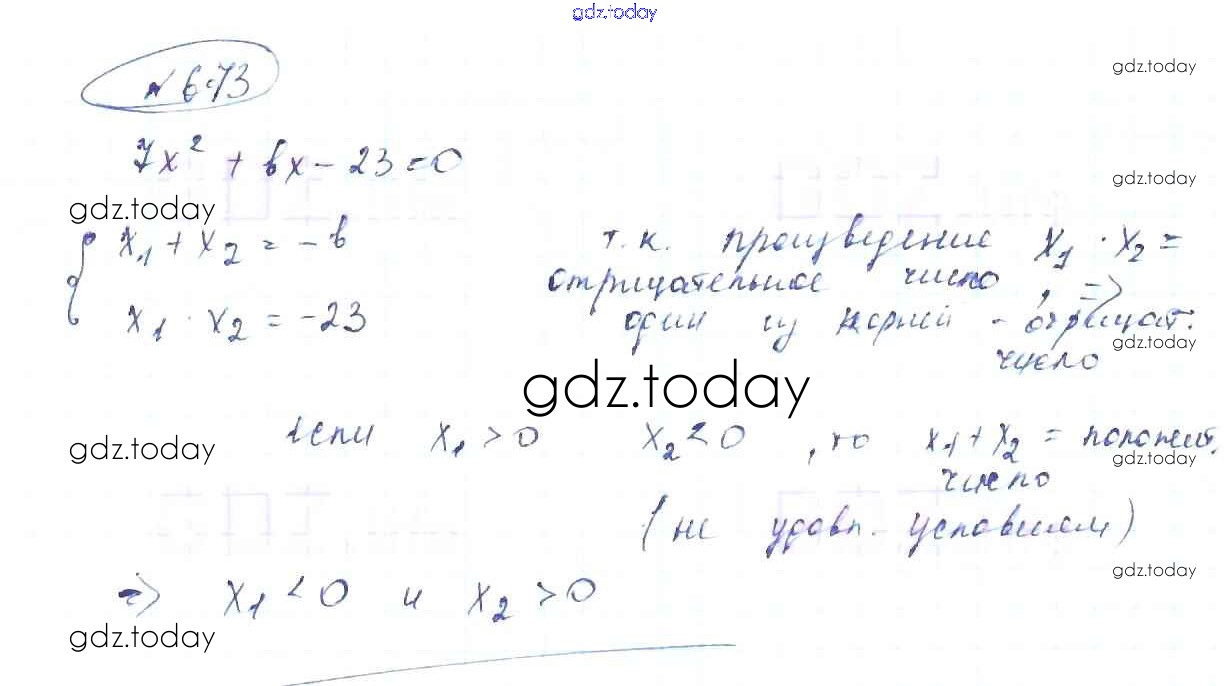 gdz.today
№ 673
gdz.today
7x² + bx - 23 = 0
gdz.today
gdz.today
{ x₁ + x₂ = -b
x₁ · x₂ = -23
т.к. произведение x₁ · x₂ =
отрицательное число, =>
один из корней - отрицат.
gdz.today
число
gdz.today
если x₁ > 0 x₂ < 0, то x₁ + x₂ = положит.
gdz.today
gdz.today
число
(не удовл. условиям)
gdz.today
=> x₁ < 0 и x₂ > 0
gdz.today